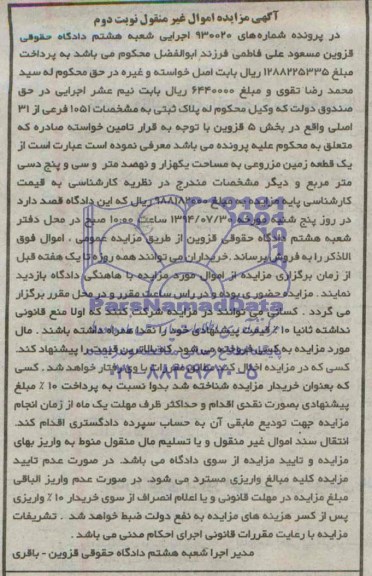 آگهی مزایده اموال غیر منقول نوبت دوم
در پرونده شماره‌های ۹۳۰۰۲۰ اجرایی شعبه هشتم دادگاه حقوقی
قزوین مسعود علی فاطمی فرزند ابوالفضل محکوم می باشد به پرداخت
مبلغ ۱۲۸۸۲۲۵۳۳۵ ریال بابت اصل خواسته و غیره در حق محکوم له سید
محمد رضا تقوی و مبلغ ۶۴۴۰۰۰۰ ریال بابت نیم عشر اجرایی در حق
صندوق دولت که وکیل محکوم له پلاک ثبتی به مشخصات ۱۰۵۱ فرعی از ۳۱
اصلی واقع در بخش ۵ قزوین با توجه به قرار تامین خواسته صادره که
متعلق به محکوم علیه پرونده می باشد معرفی نموده است عبارت است از
یک قطعه زمین مزروعی به مساحت یکهزار و نهصد متر و سی و پنج دسی
متر مربع و دیگر مشخصات مندرج در نظریه کارشناسی به قیمت
کارشناسی پایه مزایده به مبلغ ریال که این دادگاه قصد دارد
در روز پنج شنبه مورخه ساعت ۱۰:۰۰ صبح در محل دفتر
شعبه هشتم دادگاه حقوقی قزوین از طریق مزایده عمومی ، اموال فوق
الاذکر را به فروش برساند . خریداران می توانند همه روزه تا یک هفته قبل
از زمان برگزاری مزایده از اموال مورد مزایده با هاهنگی دادگاه بازدید
نمایند . مزایده حضوری بوده و در راس ساعت مقرر و در محل مقرر برگزار
می گردد . کسانی می توانند در مزایده شرکت کنند که اولا منع قانونی
نداشته ثانیا ۱۰٪ قیمت پیشنهادی خود را نقدا همراه داشته باشند . مال
مورد مزایده به کسی فروخته می شود که بالاترین قیمت را پیشنهاد کند.
کسی که در مزایده اخلال کند مطابق مقررات با وی رفتار خواهد شد . کسی
که بعنوان خریدار مزایده شناخته شد بدوا نسبت به پرداخت ۱۰٪ مبلغ
پیشنهادی بصورت نقدی اقدام و حداکثر ظرف مهلت یک ماه از زمان انجام
مزایده جهت تودیع مابقی آن به حساب سپرده دادگستری اقدام کند.
انتقال سند اموال غیر منقول و یا تسلیم مال منقول منوط به واریز بهای
مزایده و تایید مزایده از سوی دادگاه می باشد. در صورت عدم تایید
مزایده کلیه مبالغ واریزی مسترد می شود. در صورت عدم واریز الباقی
مبلغ مزایده در مهلت قانونی و یا اعلام انصراف از سوی خریدار ۱۰٪ واریزی
پس از کسر هزینه های مزایده به نفع دولت ضبط خواهد شد . تشریفات
مزایده با رعایت مقررات قانونی اجرای احکام مدنی می باشد .
مدیر اجرا شعبه هشتم دادگاه حقوقی قزوین - باقری
ParsNamadData